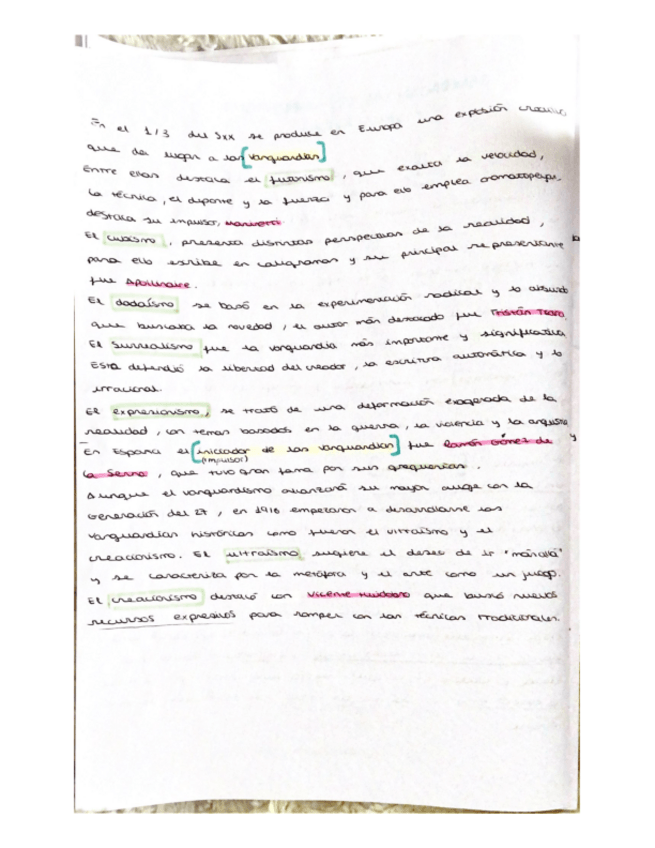 En el 1/3 del Sxx se produce en Europa una explosión creativa
que da lugar a las vanguardias
Entre ellas destaca el futurismo, que exalta la velocidad,
la técnica, el deporte y la fuerza y para ello emplea onomatopeyas,
destaca su impulsor, Marinetti
El cubismo, presenta distintas perspectivas de la realidad,
para ello escribe en caligramas y su principal representante
fue Apollinaire.
El dadaísmo se basó en la experimentación radical y lo absurdo
que buscaba la novedad, el autor más destacado fue Tristán Tzara.
El surrealismo fue la vanguardia más importante y significativa
Esta defendió la libertad del creador, la escritura automática y lo
irracional.
El expresionismo, se trató de una deformación exagerada de la
realidad, con temas basados en la guerra, la violencia y la angustia
En España el iniciador de las vanguardias fue Ramón Gómez de
(impulsor)
la Serna, que tuvo gran fama por sus greguerías.
Aunque el vanguardismo alcanzará su mayor auge con la
Generación del 27, en 1916 empezaron a desarrollarse las
vanguardias históricas como fueron el ultraísmo y el
creacionismo. El ultraísmo sugiere el deseo de ir "más allá"
y se caracteriza por la metáfora y el arte como un juego.
El creacionismo destacó con Vicente Huidobro que buscó nuevos
recursos expresivos para romper con las técnicas tradicionales.